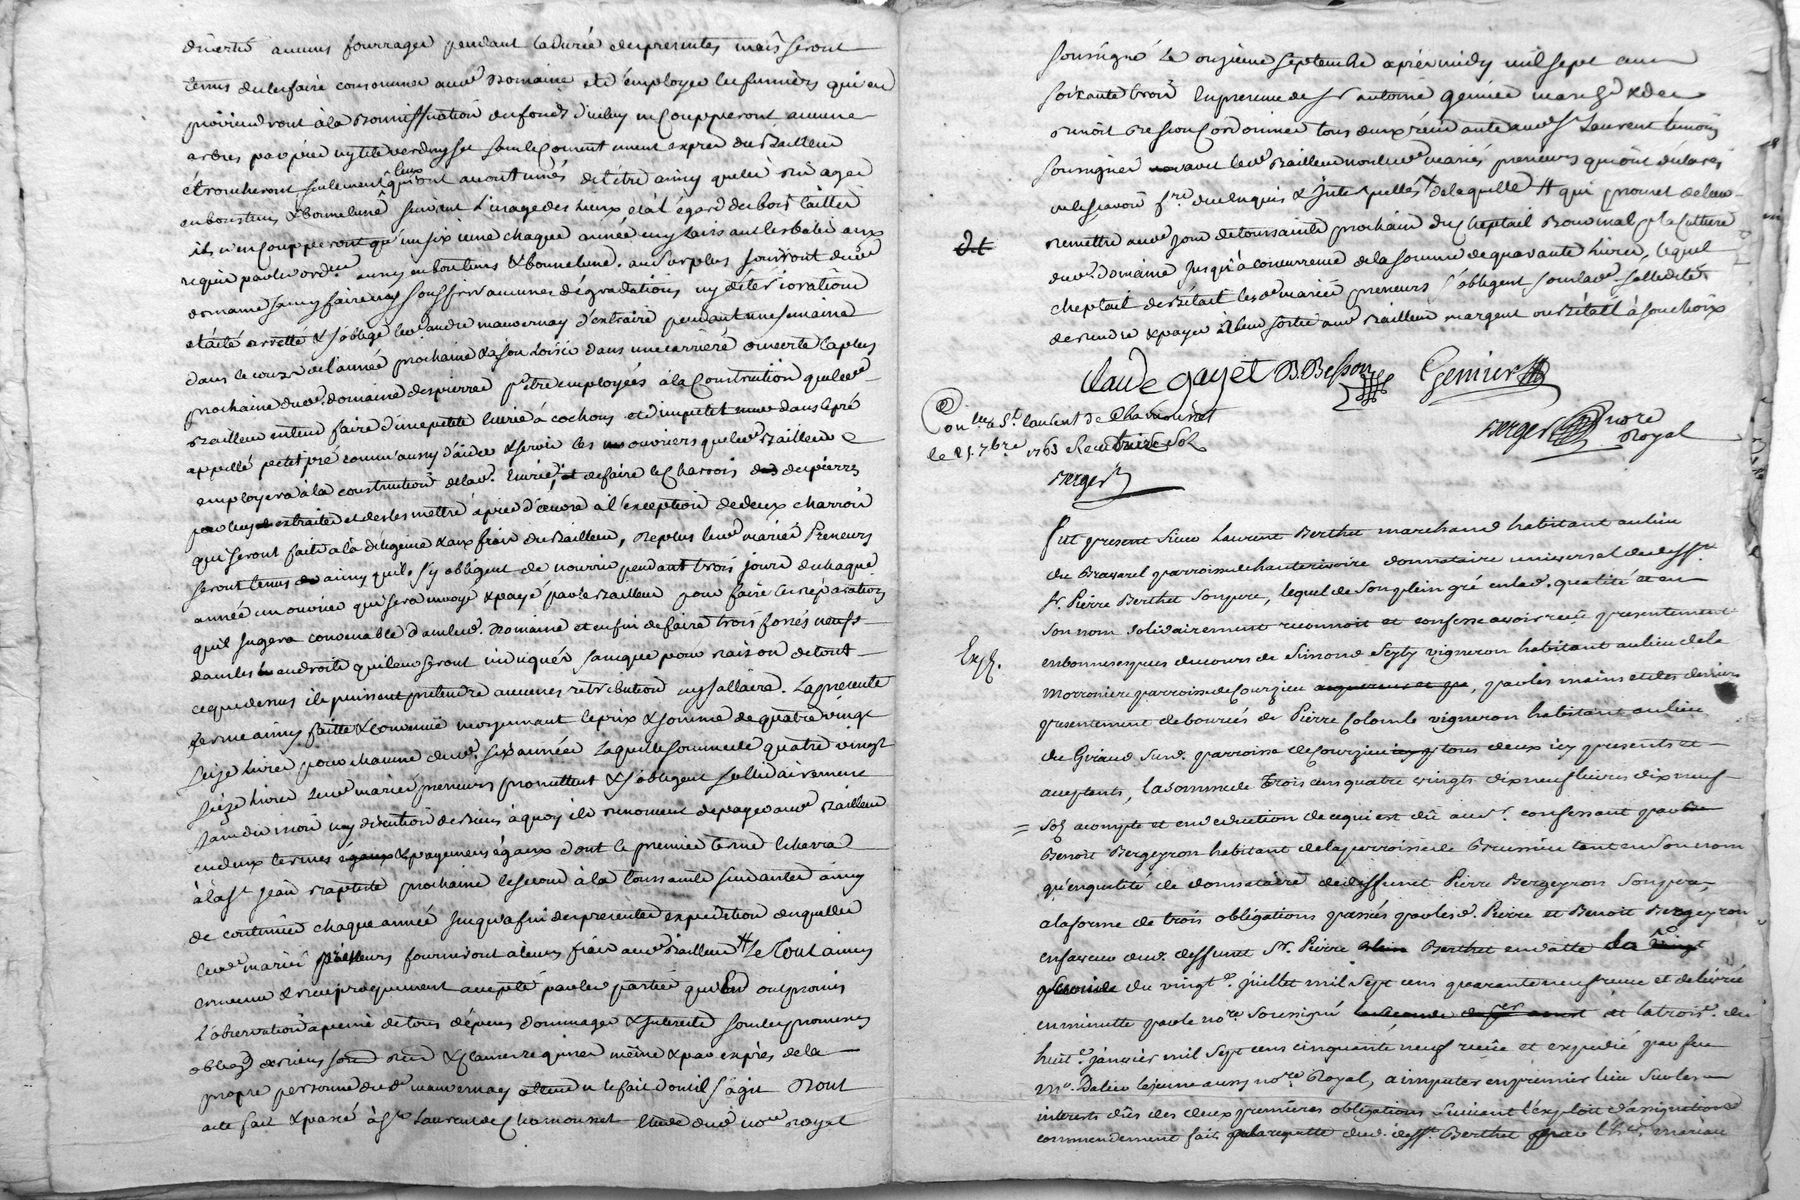 divertir aucuns fourrages pendant la durée des presentes mais seront
tenus de les faire consommer aud. Domaine et d'employer les fumiers qui en
proviendront à la Bonniffication du fonds d'iceluy ne Coupperont aucuns
arbres par pied ny tete verds ny sec sans le Consent.ment exprès du Bailleur
et troncheront seulement ceux qui ont accoutumés detêtre ainsy quels en age
en bon tems & bonne lune suivant l'usage des lieux et à l'égard des bois taillis
ils n'en Coupperont qu'un six ieme chaque année en y laissant les baliv aux
requis par les ord.ces aussy en bon tems & bonne lune. au surplus jouiront dud.
domaine sans y faire ny souffrir aucunes dégradations ny détériorations
et a été arretté & s'oblige led. andré mauvernay d'extraire pendant une semaine
dans le cours de l'année prochaine à son loisir dans une carriere ouverte la plus
prochaine dud. domaine des pierres p.r être employées à la Construction que led.
Bailleur entend faire d'une petite Ecurie à cochons et d'un petit mur dans le pré
appellé petit pré comm'aussy d'aider & servir les ouvriers que led. Bailleur
employera à la construction de lad. Ecurie, et de faire le Charrois des pierres
par luy extraites et de les mettre à pied d'œuvre à l'exception de deux charrois
qui seront faits à la diligence & aux frais du Bailleur, De plus lesd. mariés Preneurs
seront tenus ainsy quils s'y obligent de nourrir pendant trois jours de chaque
année un ouvrier qui sera envoyé & payé par le Bailleur pour faire les réparations
quil jugera convenable d'ans led. Domaine et enfin de faire trois fossés neufs
dans les endroits qui leur seront indiqués sans que pour raison de tout
ce que dessus ils puissent pretendre aucunes retribution ny sallaire. La presente
ferme ainsy faitte & convenüe moyennant le prix & somme de quatre vingt
seize livres pour chacune desd. six années Laquelle somme de quatre vingt
seize livres lesd. mariés preneurs promettent & s'obligent sollidairement
sans division ny discution de biens à quoy ils renoncent de payer aud. Bailleur
en deux termes & payemens égaux dont le premier terme echerra
à la S.t jean Baptiste prochaine le second à la toussaints suivantes ainsy
de continüer chaque année jusqu'a fin des presentes expedition desquelles
lesd. mariés preneurs fourniront à leurs frais aud. Bailleur # Le Tout ainsy
convenu & reciproquement accepté par les parties qui en ont promis
l'observation à peine de tous dépens dommages & interets sous les promesses
oblig. de biens &Clauses requises même & par exprès de la
propre personne dud. mauvernay le fait dont il s'agit Dont
acte fait & passé à S.t Laurent de Chamousset Etude dud. no.re Royal
soussigné Le onzieme septembre après midy mil sept cent
soixante trois En presence de S.r antoine Genier march.d & de
Benoît Besson Cordonnier tous deux residants aud. S.t Laurent temoins
soussignés avec led. Bailleur non lesd. mariés preneurs qui ont déclarés
ne le sçavoir f.re de ce enquis & Interpellés de laquelle # qui promet de leur
remettre aud. jour de toussaints prochain du Cheptail Bouvinal p.r la Culture
dud. domaine jusqu'à concurrence de la somme de quarante livres, lequel
cheptail de Bétail lesd. mariés preneurs s'obligent sous lad. sollidité
de rendre & payer à leur sortie aud. Bailleur en argent ou Bétail à son choix
Claude gayet B. Besson Genier
Con.lé à S.t Laurent de Chamousset
le 21 7bre 1763 Reçu treize sols
Berger
Berger no.re
Royal
Fut present sieur Laurent Berthet marchand habitant au lieu
du Bravard parroisse de hauterivoire donnataire universel de deff.t
S.r Pierre Berthet son pere, lequel de son plein gré en lad. qualité et en
son nom solidairement reconnoit et confesse avoir reçu presentement
Exp.
en bonnes especes du cours de Simond Sezty vigneron habitant au lieu de la
morroniere parroisse de Courzieu, par les mains et des deniers
presentement debourcés de Pierre Colomb vigneron habitant au lieu
du Giraud Sur. parroisse de Courzieu tous deux icy presents et
acceptants, la somme de Trois cens quatre vingts dix neuf livres dix neuf
sols acompte et en deduction de ce qui est dû aud. S.r confessant par
Benoit Bergeyron habitant de la parroisse de Brussieu tant en son nom
qu'en qualité de donnataire de deffunct Pierre Bergeyron son pere,
a la forme de trois obligations passés par lesd. Pierre et Benoit Bergeyron
en faveur dud. deffunct S.r Pierre Berthet en datte la
du vingt.e juillet mil sept cens quarante neuf reçue et delivrée
en minutte par le no.re soussigné et la trois.e du
huit.e janvier mil sept cens cinquante neuf reçüe et expediée par feu
M.e Dalier lejeune aussy no.re Royal, a imputer en premier lieu sur les
interets dûs des deux premieres obligations suivant l'exploit d'assignation
commendement fait a la requette dud. deff.t Berthet par